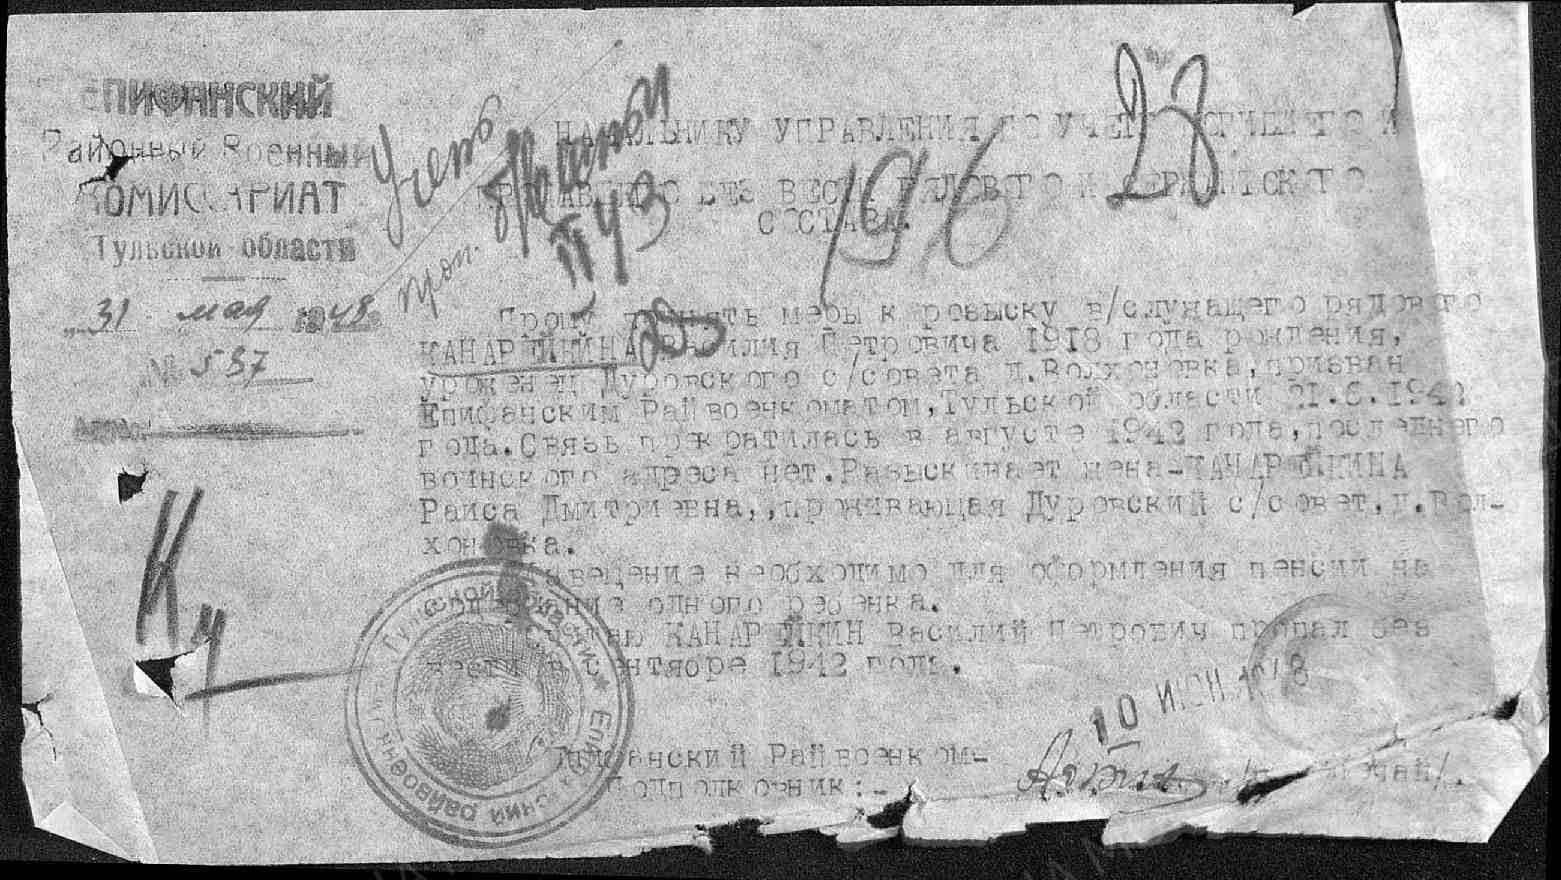 ЕПИФАНСКИЙ
Районный Военный
КОМИССАРИАТ
Тульской области
31 мая 1948
№ 537
Учето
проп.
196
28
НАЧАЛЬНИКУ УПРАВЛЕНИЯ ПО УЧЕТУ ПОГИБШЕГО И
ПРОПАВШЕГО БЕЗ ВЕСТИ РЯДОВОГО И СЕРЖАНТСКОГО
СОСТАВА.
Прошу принять меры к розыску в/служащего рядового
КАНАРЕЙКИНА Василия Петровича 1918 года рождения,
уроженец Дуровского с/совета д.Волхоновка, призван
Епифанским Райвоенкоматом, Тульской области 21.6.1942
года. Связь прекратилась в августе 1942 года, последнего
воинского адреса нет. Разыскивает жена-КАНАРЕЙКИНА
Раиса Дмитриевна,,проживающая Дуровский с/совет, д.Вол-
хоновка.
Извещение необходимо для оформления пенсии на
содержание одного ребенка.
Считаю КАНАРЕЙКИН Василий Петрович пропал без
вести в сентябре 1942 года.
Епифанский Райвоенком-
Подполковник:-
10 ИЮН 1948
Тульской области * Епифанский райвоенкомат